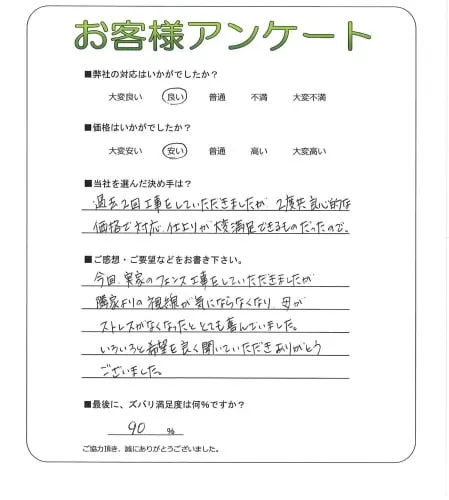 お客様アンケート
■弊社の対応はいかがでしたか？
大変良い 良い 普通 不満 大変不満
■価格はいかがでしたか？
大変安い 安い 普通 高い 大変高い
■当社を選んだ決め手は？
過去2回工事をしていただきましたが、2度共良心的な
価格で対応、仕上りが大変満足できるものだったので。
■ご感想・ご要望などをお書き下さい。
今回、実家のフェンス工事をしていただきましたが
隣家よりの視線が気にならなくなり、母が
ストレスがなくなったととても喜んでいました。
いろいろと希望を良く聞いていただきありがとう
ございました。
■最後に、ズバリ満足度は何％ですか？
90 %
ご協力頂き、誠にありがとうございました。